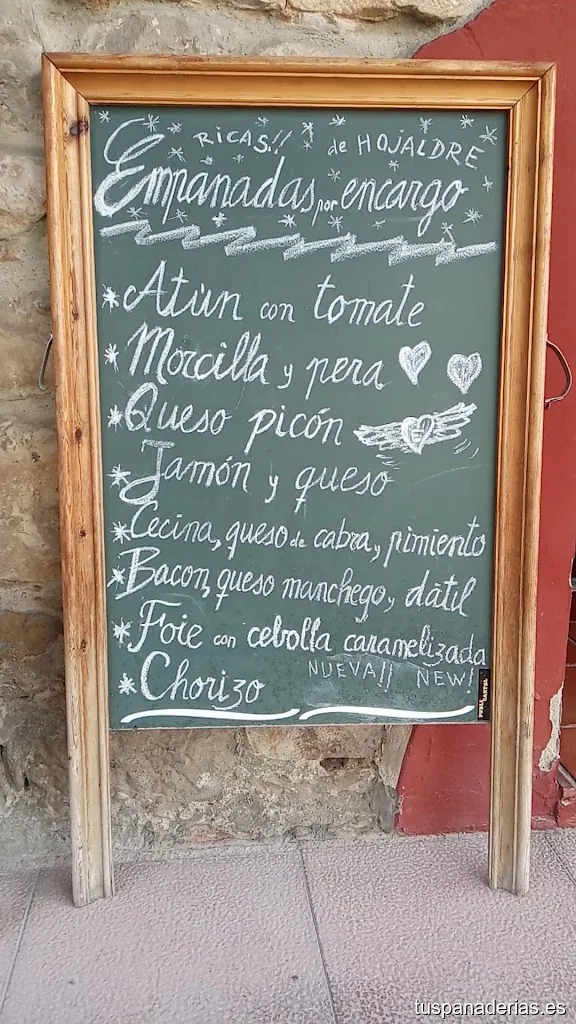 RICAS!! de HOJALDRE
Empanadas por encargo
Atún con tomate
Morcilla y pera
Queso picón
Jamón y queso
Cecina, queso de cabra y pimiento
Bacon, queso manchego y dátil
Foie con cebolla caramelizada
NUEVA!! NEW!
Chorizo
PUBLI CARTEL
tuspanaderias.es